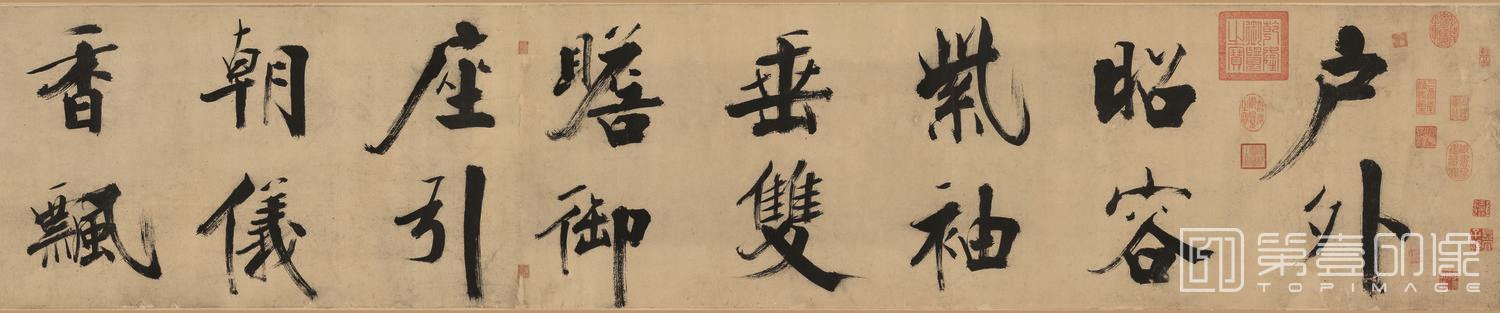 户外
昭容
紫袖
垂雙
瞻御
座引
朝儀
香飄
乾隆御覽之寶
第壹印像
TOPIMAGE